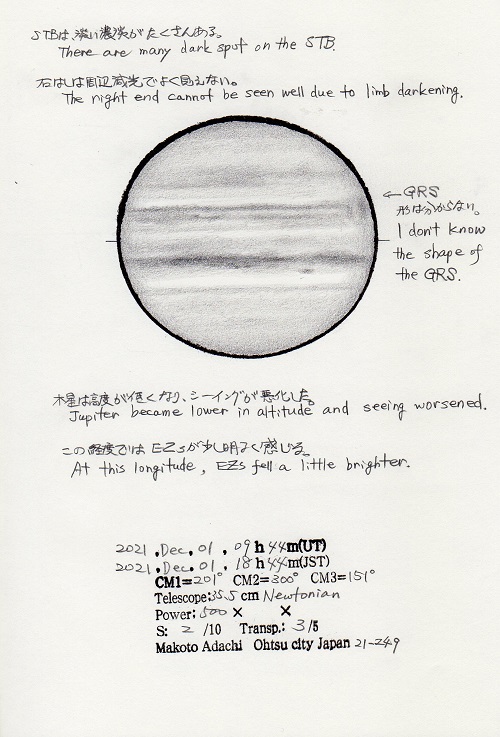 STBは、淡い濃淡がたくさんある。
There are many dark spot on the STB.
右はしは周辺減光でよく見えない。
The right end cannot be seen well due to limb darkening.
←GRS
形は分からない。
I don't know
the shape of
the GRS.
木星は高度が低くなり、シーイングが悪化した。
Jupiter became lower in altitude and seeing worsened.
この経度では EZsが少し明るく感じる。
At this longitude, EZs fell a little brighter.
2021, Dec, 01, 09h 44m(UT)
2021, Dec, 01, 18h 44m(JST)
CM1=201° CM2=300° CM3=151°
Telescope:35.5 cm Newtonian
Power: 500 × ×
S: 2 /10 Transp.: 3/5
Makoto Adachi Ohtsu city Japan 21-249